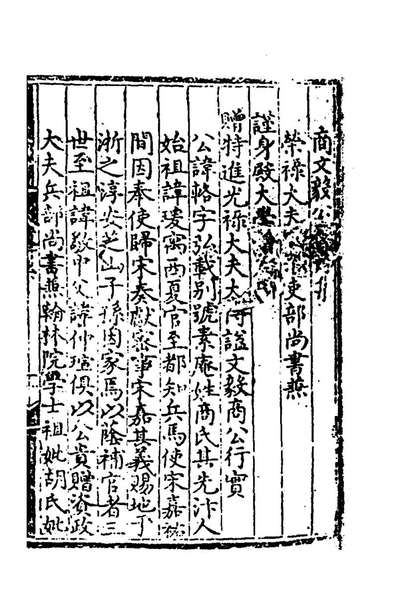 商文毅公
榮祿大夫 吏部尚書兼
謹身殿大學
贈特進光祿大夫太 謚文毅商公行實
公諱輅字弘載別號素庵姓商氏其先汴人
始祖諱瑗寓西夏官至都知兵馬使宋嘉祐
間因奉使歸宋奏獻密事宋嘉其義賜地于
浙之淳安芝山子孫因家焉以蔭補官者三
世至祖諱敬中父諱仲瑄俱以公貴贈資政
大夫兵部尚書兼翰林院學士祖妣胡氏妣